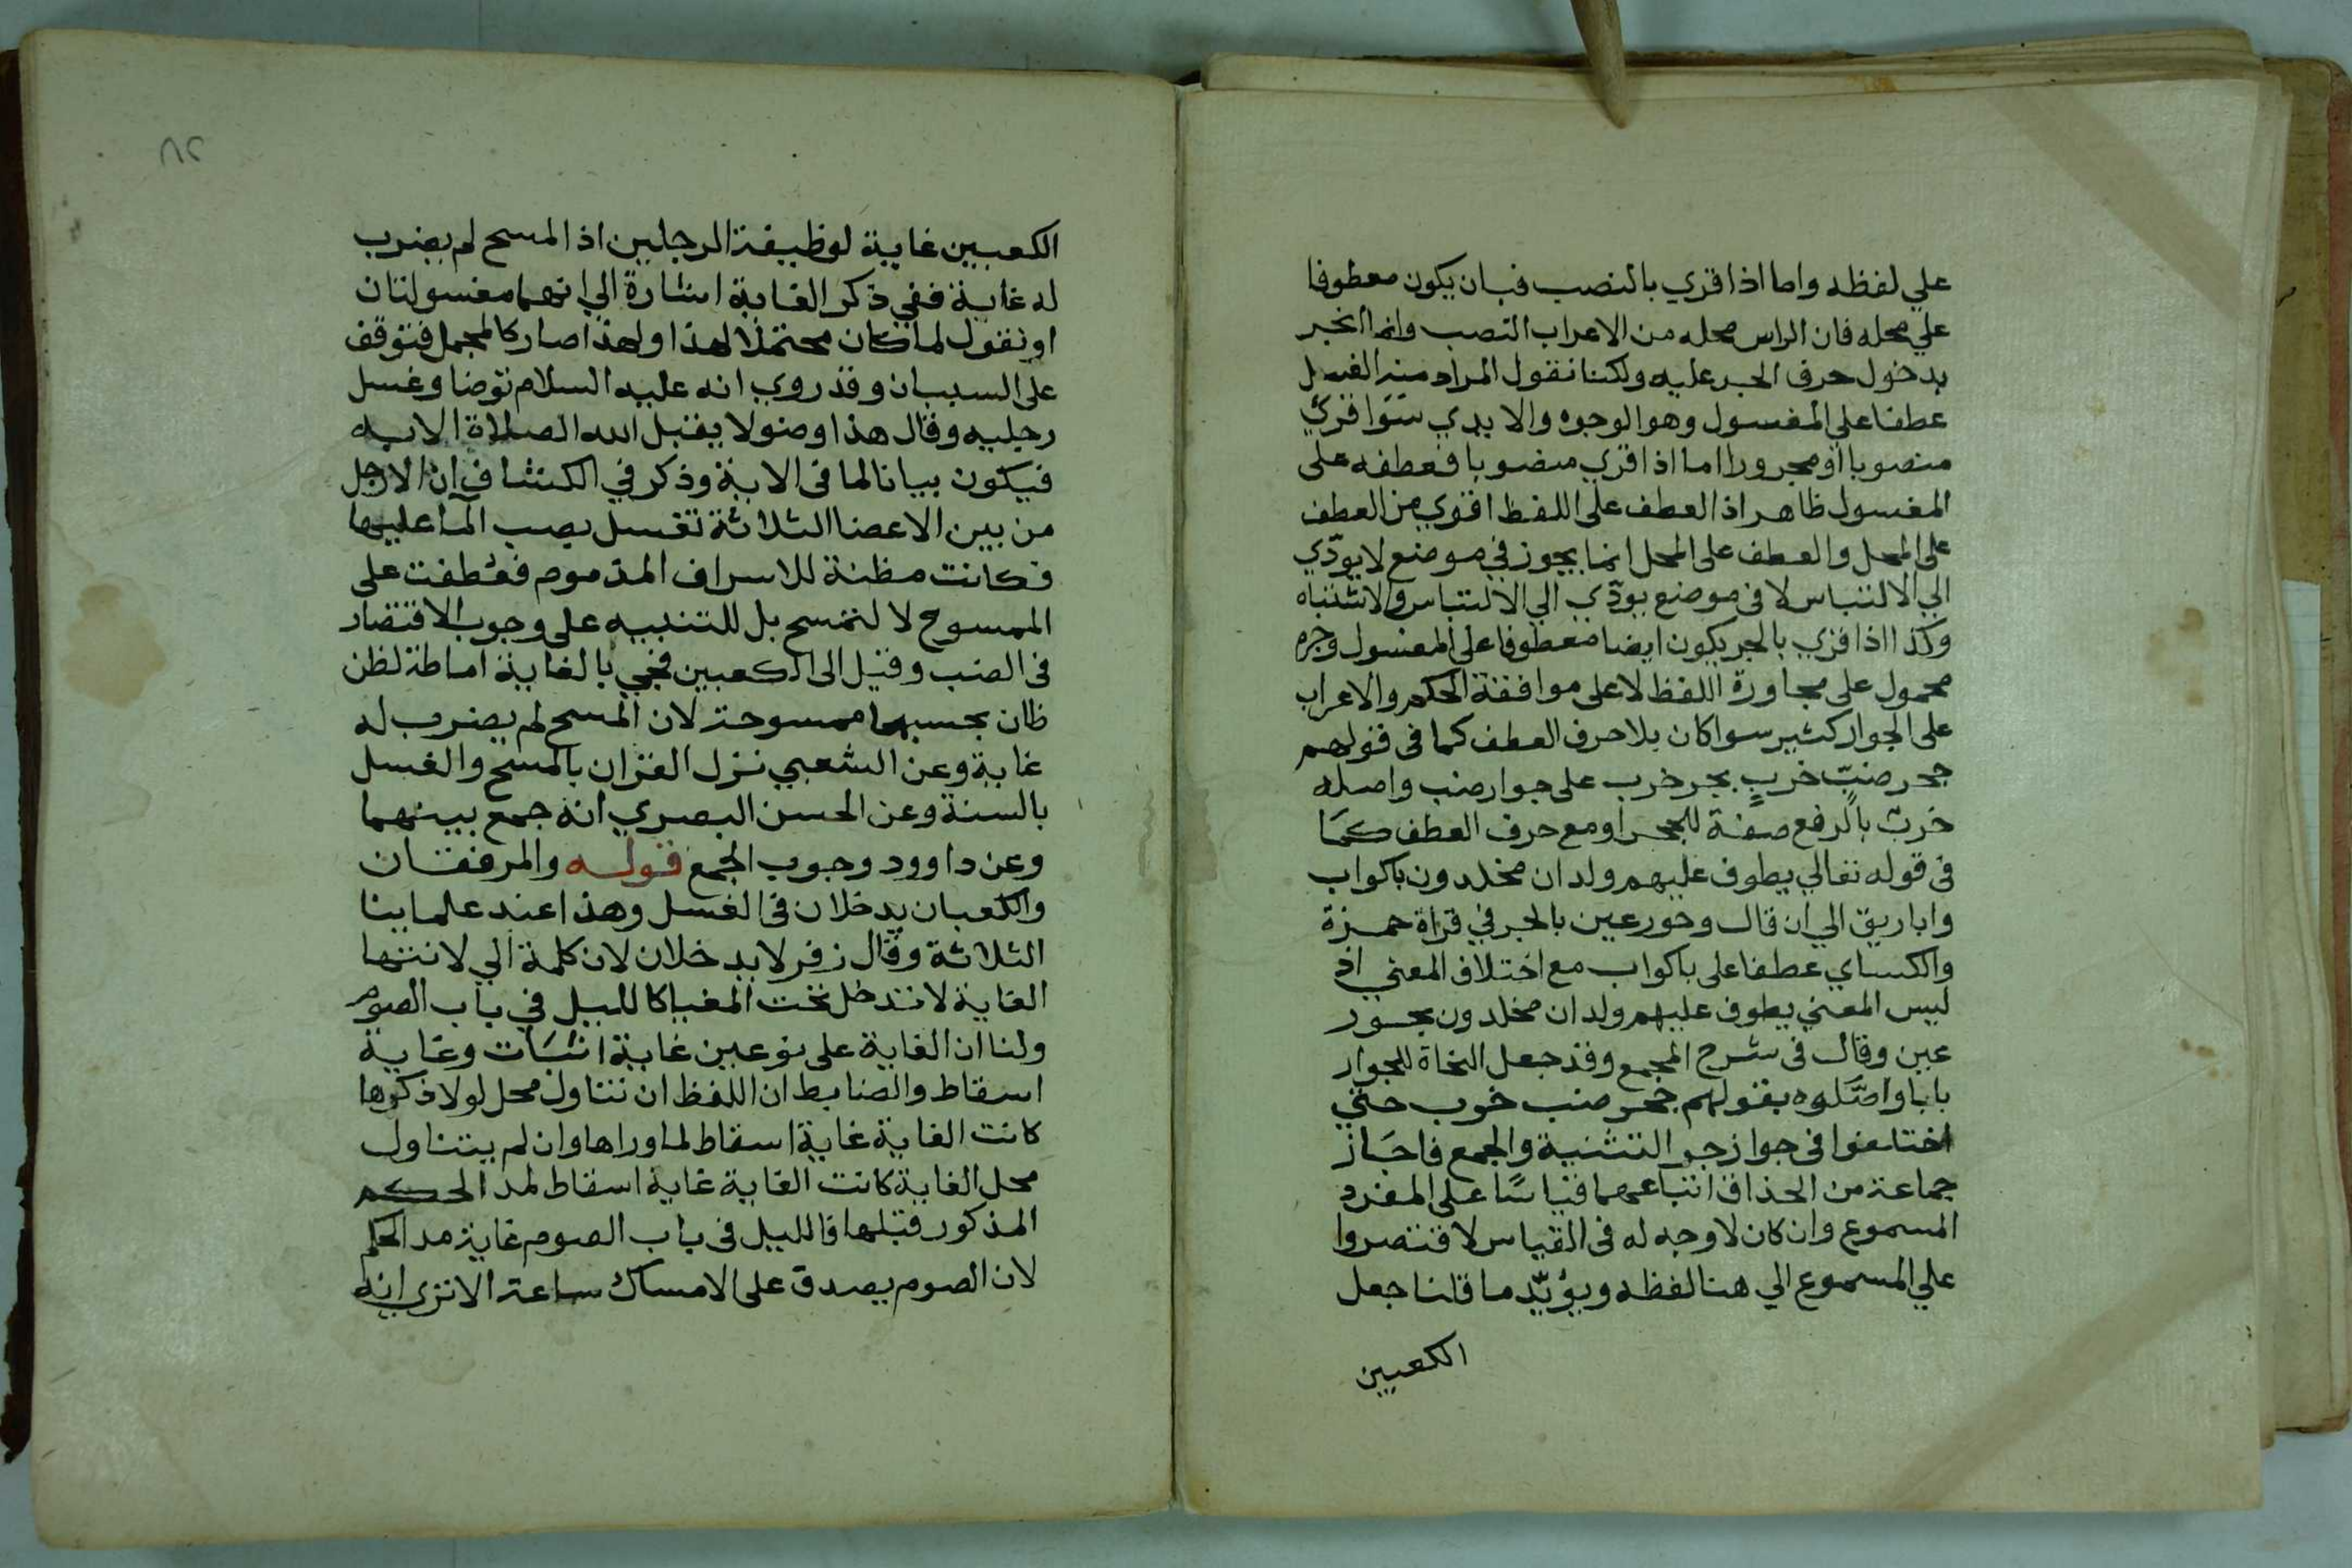 علي لفظه واما اذا قري بالنصب فبان يكون معطوفا
علي محله فان الراس محله من الاعراب النصب وانما انجر
بدخول حرف الجر عليه ولكنا نقول المراد منه الغسل
عطفا علي المغسول وهو الوجوه والايدي سَوا قرئ
منصوبا او مجرورا اما اذا قري منصوبا فعطفه على
المغسول ظاهر اذ العطف على اللفظ اقوي من العطف
على المحل والعطف على المحل انما يجوز في موضع لا يودّي
الي الالتباس لا فى موضع يودّي الي الالتباس والاشتباه
وكذا اذا قري بالجر يكون ايضا معطوفا على المغسول وجره
محمول على مجاورة اللفظ لا على موافقة الحكم والاعراب
على الجوار كثير سوا كان بلا حرف العطف كما فى قولهم
جحر ضبّ خربٍ بجر خرب على جوار ضب واصله
خربٌ بالرفع صفة للجحر او مع حرف العطف كمَا
فى قوله تعالي يطوف عليهم ولدان مخلدون باكواب
واباريق الي ان قال وحور عين بالجر في قراة حمزة
والكساي عطفا على باكواب مع اختلاف المعني اذ
ليس المعني يطوف عليهم ولدان مخلدون بحور
عين وقال فى شرح المجمع وقد جعل النحاة للجوار
بابا واصَّلوه بقولهم جحر ضب خرب حتي
اختلفوا فى جواز جر التثنية والجمع فاجَاز
جماعة من الحذاق اتباعهما قياسًا على المفرد
المسموع وان كان لا وجه له فى القياس لاقتصروا
علي المسموع الي هنا لفظه ويؤيّد ما قلنا جعل
الكعبين
٧٢
الكعبين غاية لوظيفة الرجلين اذ المسح لم يضرب
له غاية ففي ذكر الغاية اشارة الي انهما مغسولتان
او نقول لما كان محتملا لهذا ولهذا صار كالمجمل فتوقف
على البيان وقد روي انه عليه السلام توضا وغسل
رجليه وقال هذا وضو لا يقبل الله الصلاة الا به
فيكون بيانا لما فى الاية وذكر في الكشاف ان الارجل
من بين الاعضا الثلاثة تغسل بصب المآ عليها
فكانت مظنة للاسراف المذموم فعُطفت على
الممسوح لا لتمسح بل للتنبيه على وجوب الاقتصار
فى الصب وقيل الى الكعبين فجي بالغاية اماطة لظن
ظان يحسبها ممسوحة لان المسح لم يضرب له
غاية وعن الشعبي نزل القران بالمسح والغسل
بالسنة وعن الحسن البصري انه جمع بينهما
وعن داوود وجوب الجمع قوله والمرفقان
والكعبان يدخلان فى الغسل وهذا عند علماينا
الثلاثة وقال زفر لا يدخلان لان كلمة الي لانتها
الغاية لا تدخل تحت المغيا كالليل في باب الصوم
ولنا ان الغاية على نوعين غاية اثبَات وغاية
اسقاط والضابط ان اللفظ ان تناول محل لولا ذكرها
كانت الغاية غاية اسقاط لما وراها وان لم يتناول
محل الغاية كانت الغاية غاية اسقاط لمد الحكم
المذكور قبلها فالليل فى باب الصوم غاية مد الحكم
لان الصوم يصدق على الامساك ساعة الا تري انه